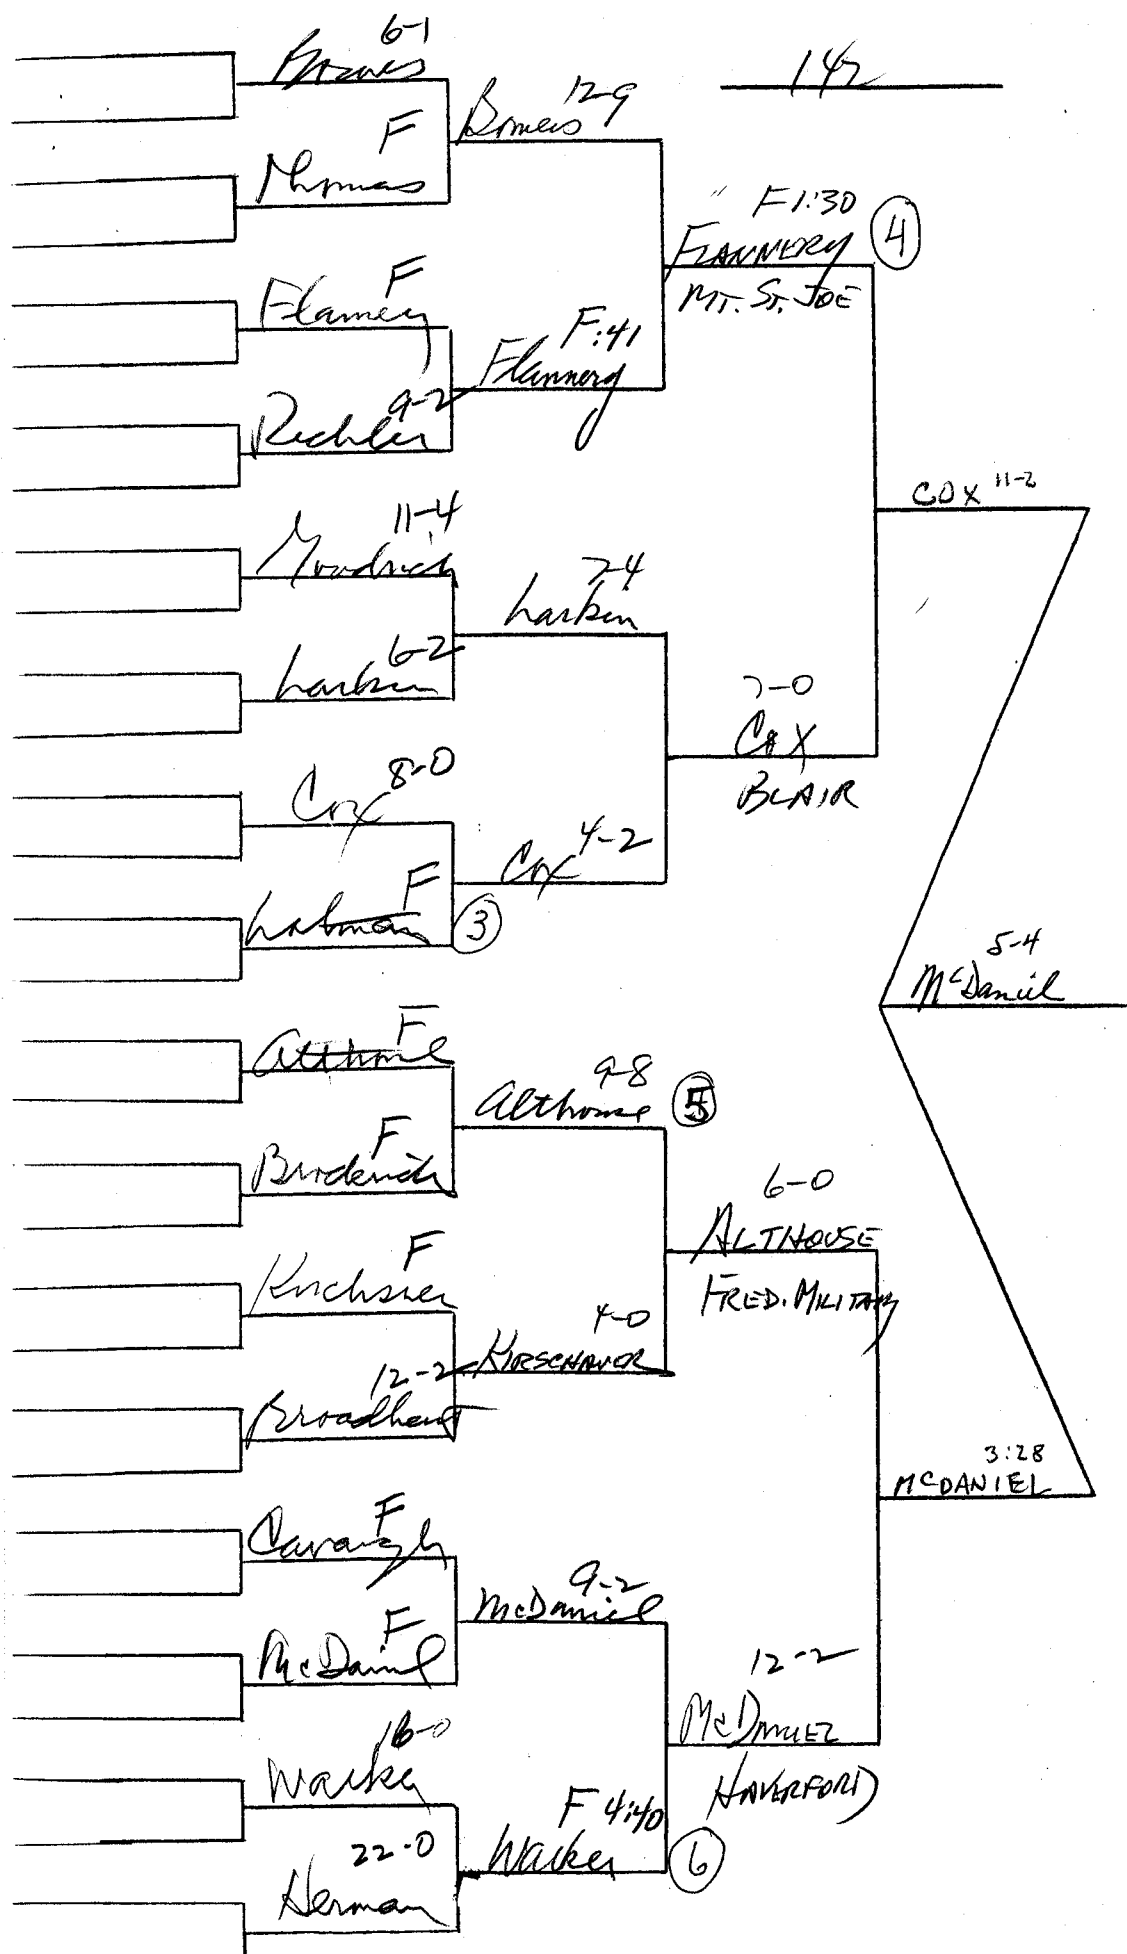 142
6-1
F
Thomas
F
9-2
11-4
Goodrich
6-2
Larkin
8-0
Cox
F
Lohman
F
Althouse
F
Broderick
F
12-2
Broadhead
F
Cavanagh
F
McDaniel
16-0
Walker
22-0
Herman
12-9
F :41
Flannery
7-4
Larkin
4-2
Cox
3
9-8
Althouse
5
4-0
9-2
McDaniel
F 4:40
Walker
6
F 1:30
FLANNERY
4
MT. ST. JOE
7-0
COX
BLAIR
6-0
ALTHOUSE
FRED. MILITARY
12-2
McDANIEL
HAVERFORD
COX 11-2
3:28
McDANIEL
5-4
McDaniel